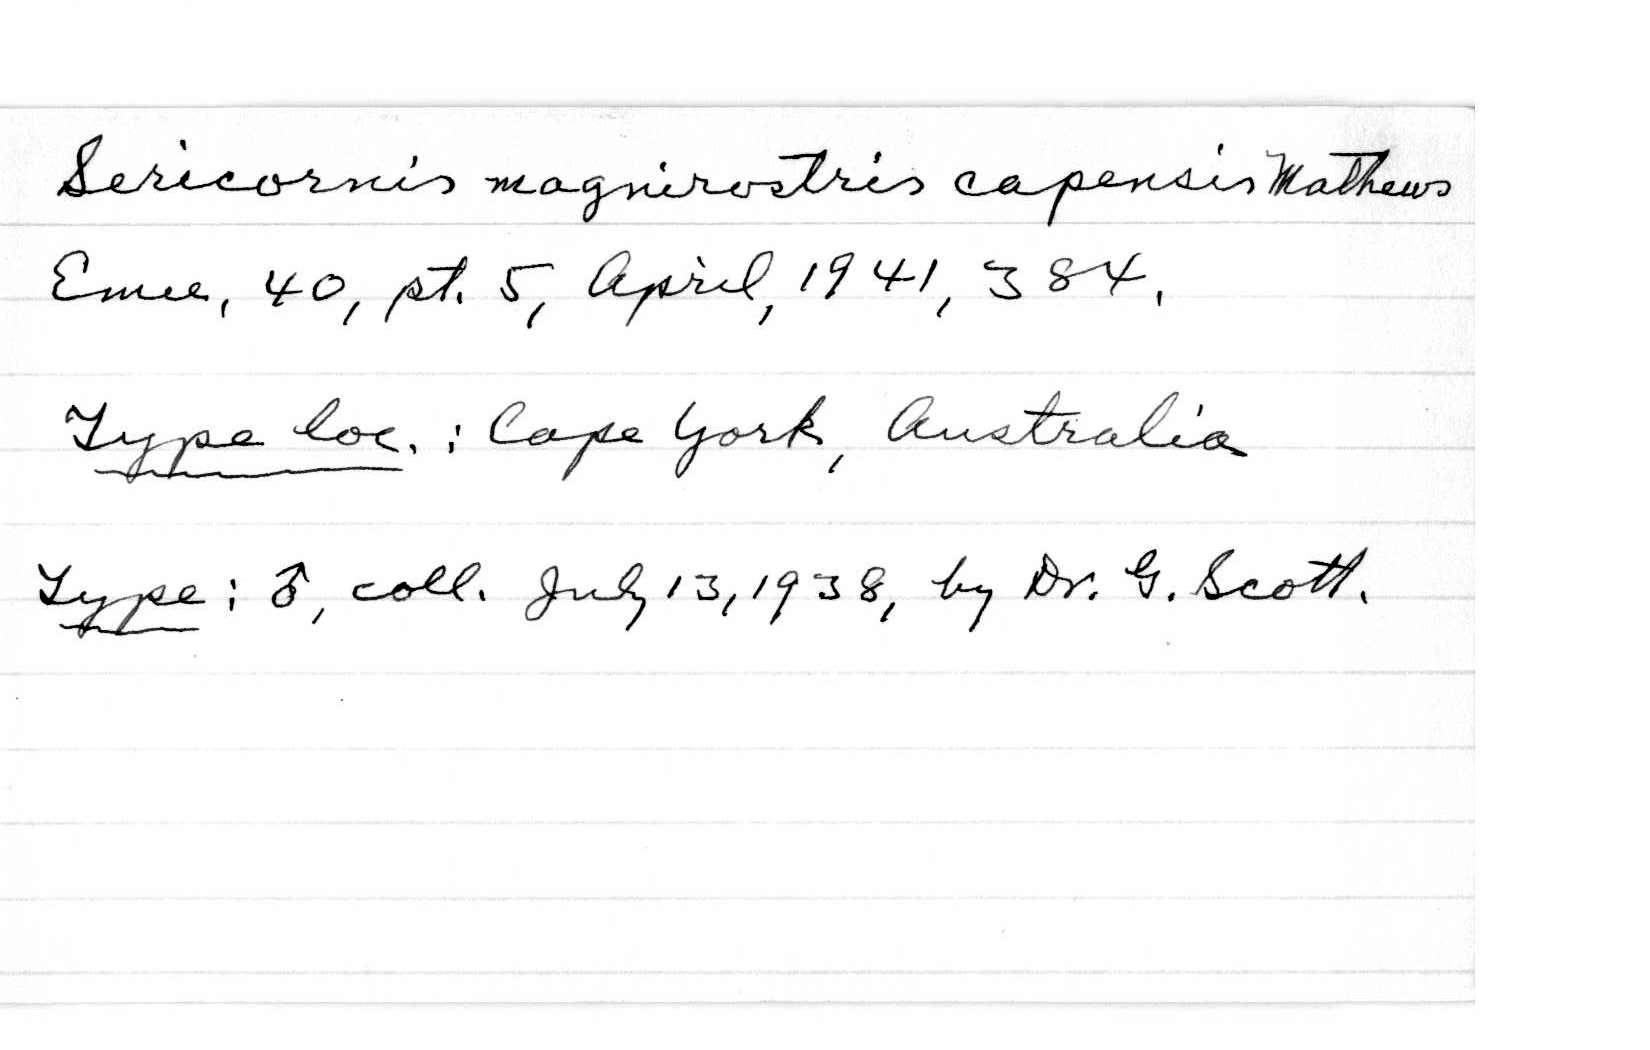 Sericornis magnirostris capensis Mathews
Emu, 40, pt. 5, April, 1941, 384.
Type loc. : Cape York, Australia
Type : ♂, coll. July 13, 1938, by Dr. G. Scott.